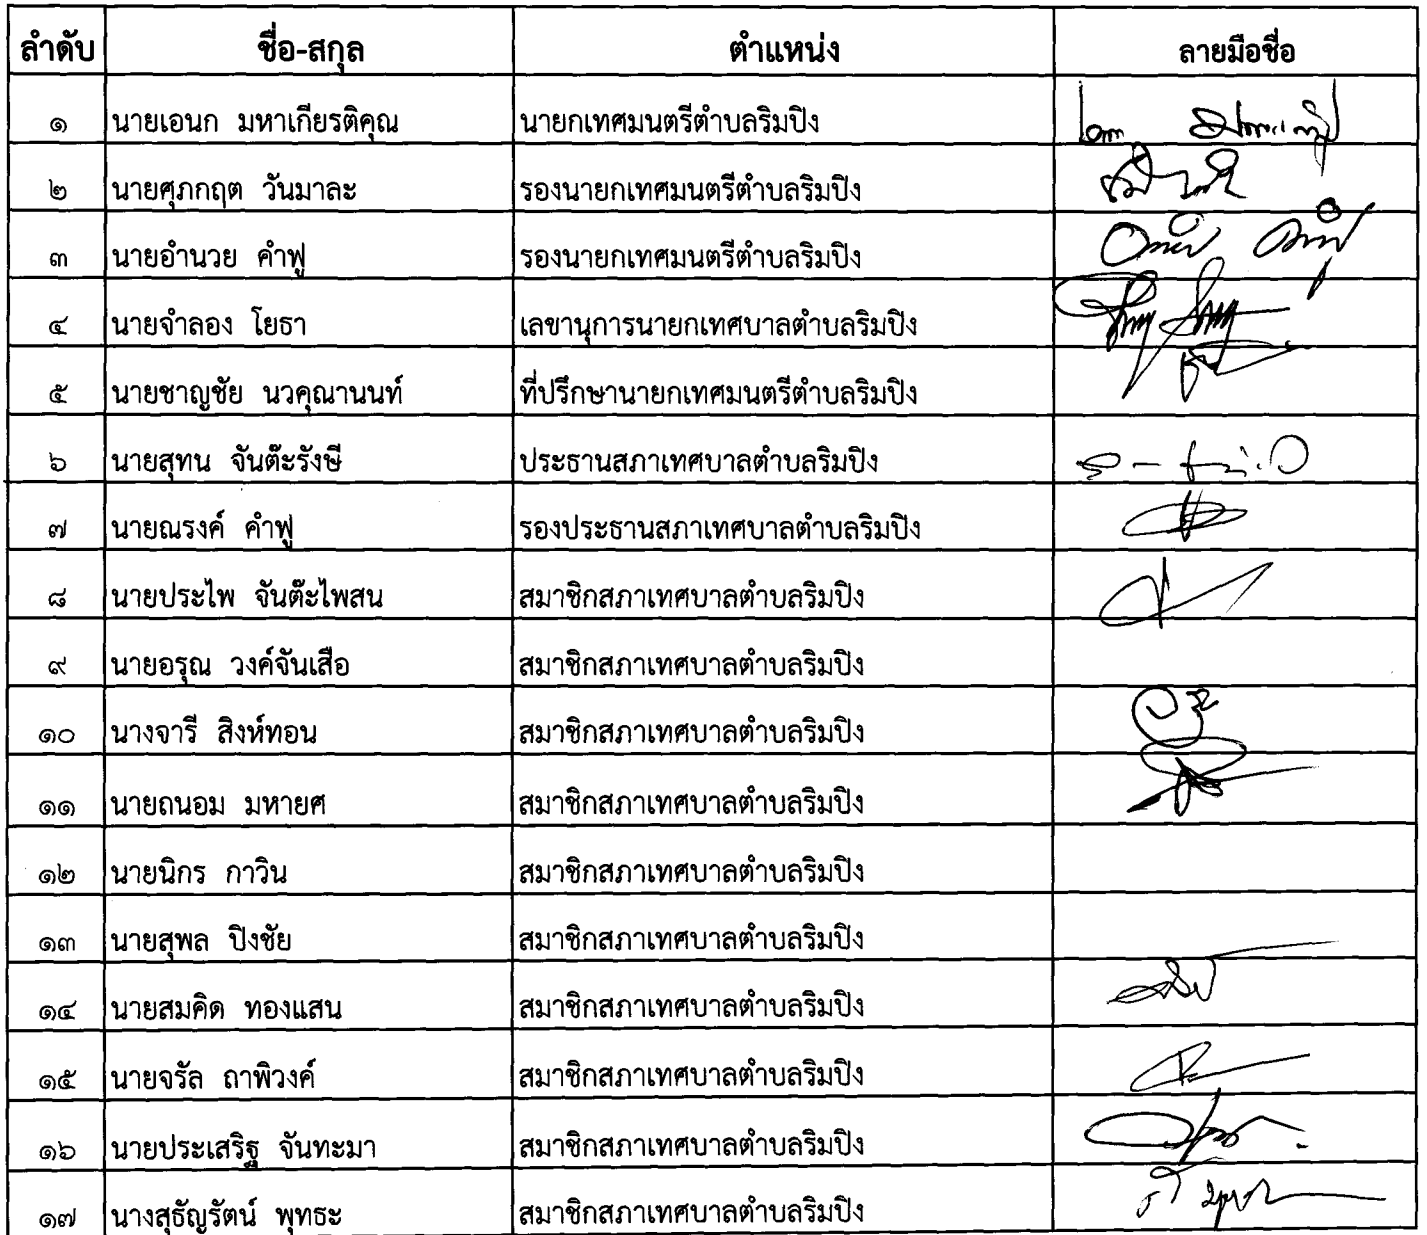 ลำดับ ชื่อ-สกุล ตำแหน่ง ลายมือชื่อ
๑ นายเอนก มหาเกียรติคุณ นายกเทศมนตรีตำบลริมปิง
๒ นายศุภกฤต วันมาละ รองนายกเทศมนตรีตำบลริมปิง
๓ นายอำนวย คำฟู รองนายกเทศมนตรีตำบลริมปิง
๔ นายจำลอง โยธา เลขานุการนายกเทศบาลตำบลริมปิง
๕ นายชาญชัย นวคุณานนท์ ที่ปรึกษานายกเทศมนตรีตำบลริมปิง
๖ นายสุทน จันต๊ะรังษี ประธานสภาเทศบาลตำบลริมปิง
๗ นายณรงค์ คำฟู รองประธานสภาเทศบาลตำบลริมปิง
๘ นายประไพ จันต๊ะไพสน สมาชิกสภาเทศบาลตำบลริมปิง
๙ นายอรุณ วงค์จันเสือ สมาชิกสภาเทศบาลตำบลริมปิง
๑๐ นางจารี สิงห์ทอน สมาชิกสภาเทศบาลตำบลริมปิง
๑๑ นายถนอม มหายศ สมาชิกสภาเทศบาลตำบลริมปิง
๑๒ นายนิกร กาวิน สมาชิกสภาเทศบาลตำบลริมปิง
๑๓ นายสุพล ปิงชัย สมาชิกสภาเทศบาลตำบลริมปิง
๑๔ นายสมคิด ทองแสน สมาชิกสภาเทศบาลตำบลริมปิง
๑๕ นายจรัล ถาพิวงค์ สมาชิกสภาเทศบาลตำบลริมปิง
๑๖ นายประเสริฐ จันทะมา สมาชิกสภาเทศบาลตำบลริมปิง
๑๗ นางสุธัญรัตน์ พุทธะ สมาชิกสภาเทศบาลตำบลริมปิง